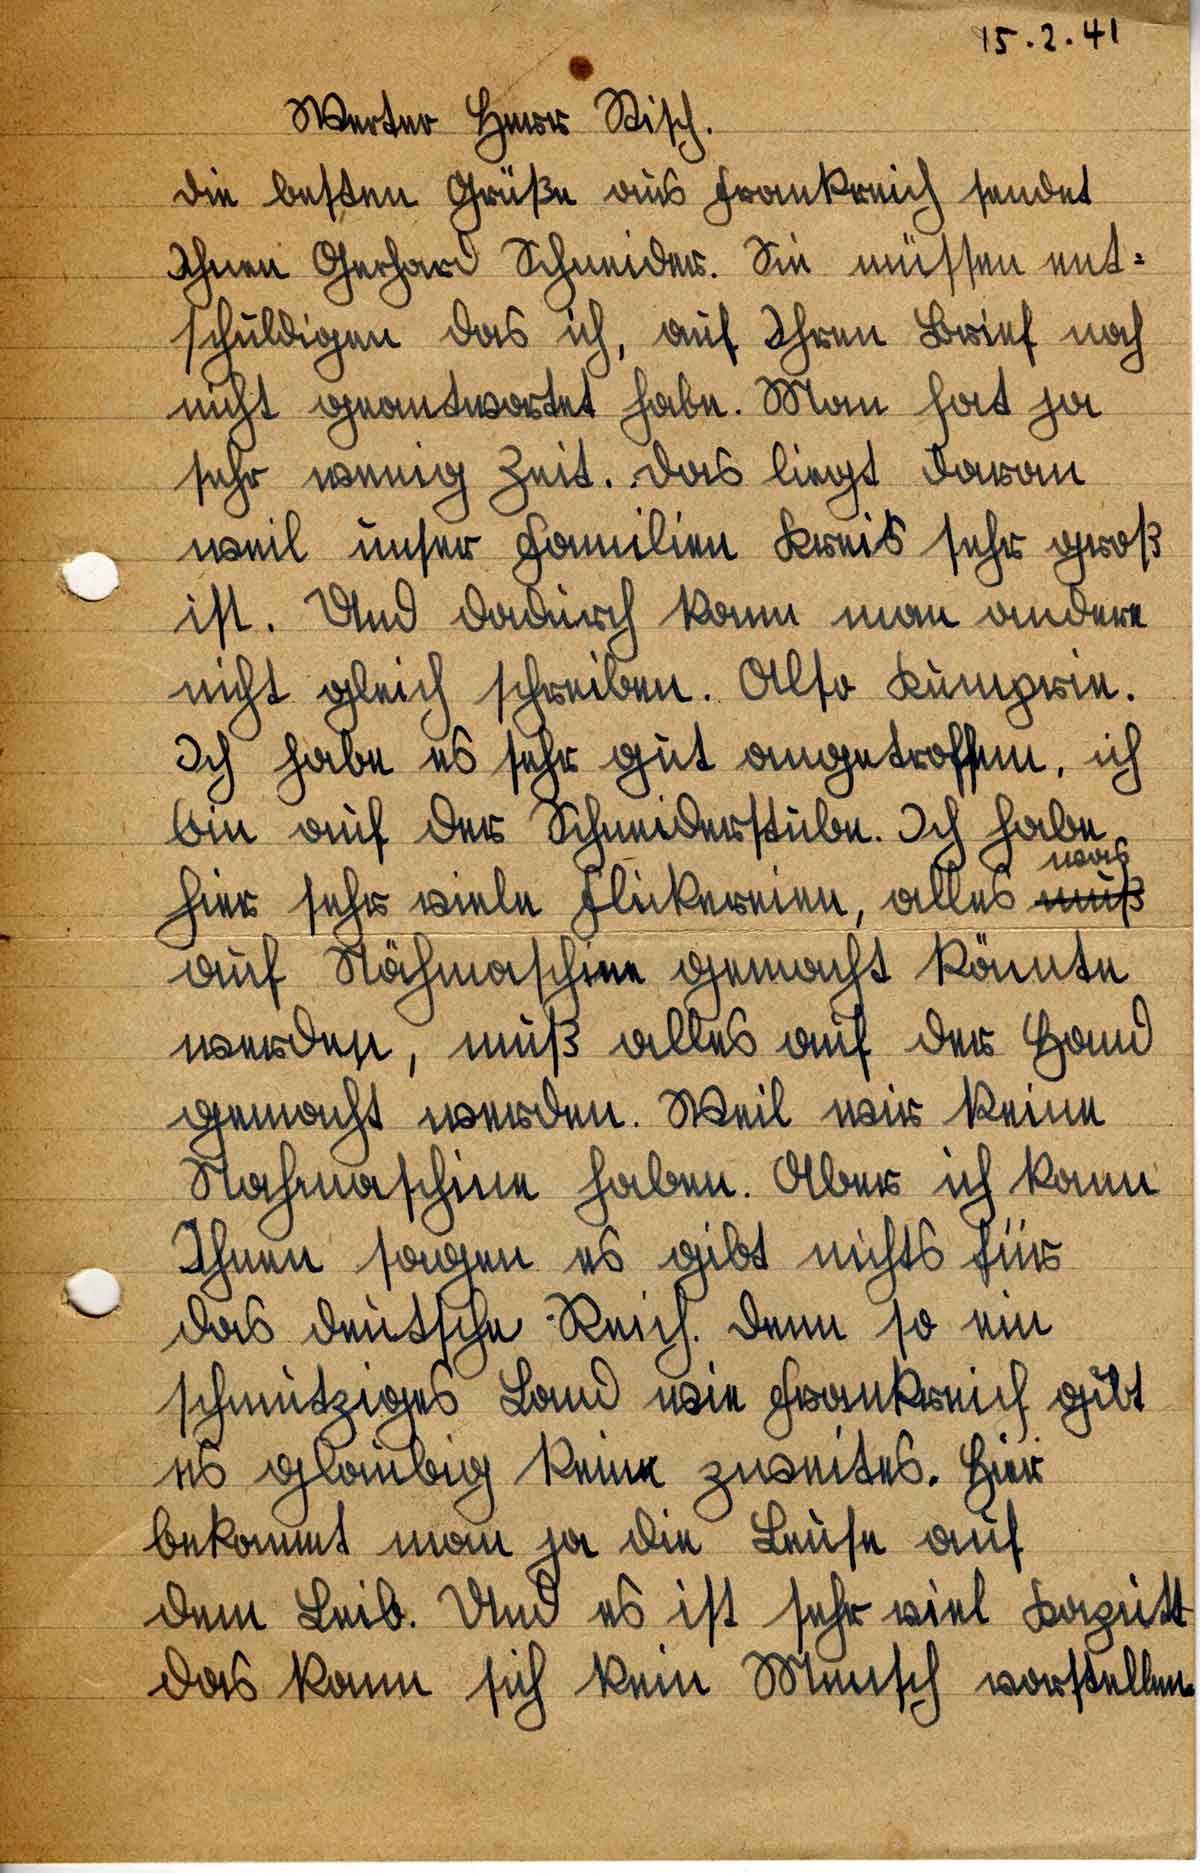 15.2.41
Werter Herr Kisch.
Die besten Grüße aus Frankreich sendet
Ihnen Gerhard Schneider. Sie müssen ent=
schuldigen das ich, auf Ihren Brief noch
nicht geantwortet habe. Man hat ja
sehr wenig Zeit. Das liegt daran
weil unser Familien Kreis sehr groß
ist. Und dadurch kann man andere
nicht gleich schreiben. Also
Ich habe es sehr gut angetroffen, ich
bin auf der Schneiderstube. Ich habe
hier sehr viele Flickereien, alles was
auf Nähmaschine gemacht könnte
werden, muß alles auf der Hand
gemacht werden. Weil wir keine
Nahmaschine haben. Aber ich kann
Ihnen sagen es gibt nichts für
das deutsche Reich. Denn so ein
schmutziges Land wie Frankreich gibt
es glaubig kein zweites. Hier
bekommt man ja die Leuse auf
dem Leib. Und es ist sehr viel Kaputt
das kann sich kein Mensch vorstellen.